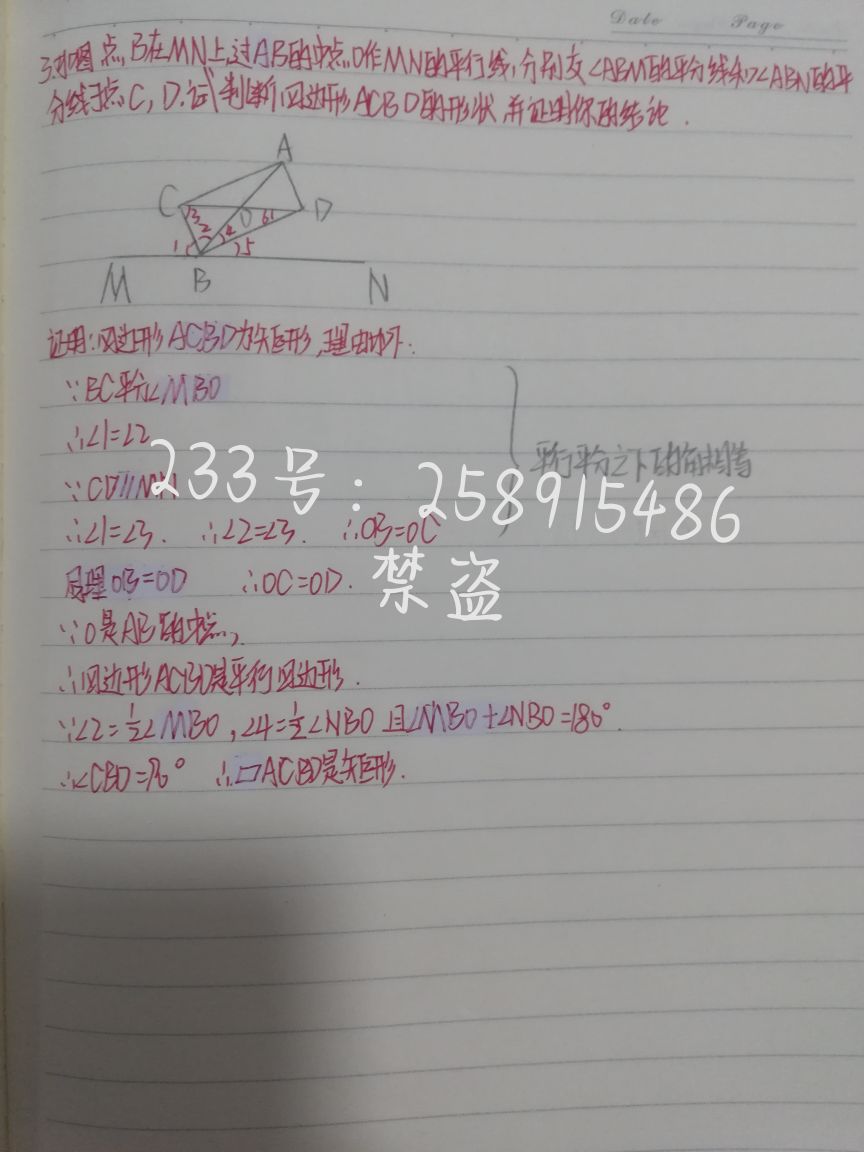 Date Page
3.如图,点B在MN上,过AB的中点O作MN的平行线,分别交∠ABM的平分线和∠ABN的平
分线于点C,D.试判断四边形ACBD的形状,并证明你的结论.
A
C 3 O 6 D
2 4
1 5
M B N
证明:四边形ACBD为矩形,理由如下:
∵BC平分∠MBO
∴∠1=∠2
平行平分之下的角相等
∵CD//MN
233号:258915486
∴∠1=∠3. ∴∠2=∠3. ∴OB=OC
禁盗
同理OB=OD ∴OC=OD.
∵O是AB的中点,
∴四边形ACBD是平行四边形.
∵∠2=½∠MBO,∠4=½∠NBO 且∠MBO+∠NBO=180°.
∴∠CBD=90° ∴▱ACBD是矩形.